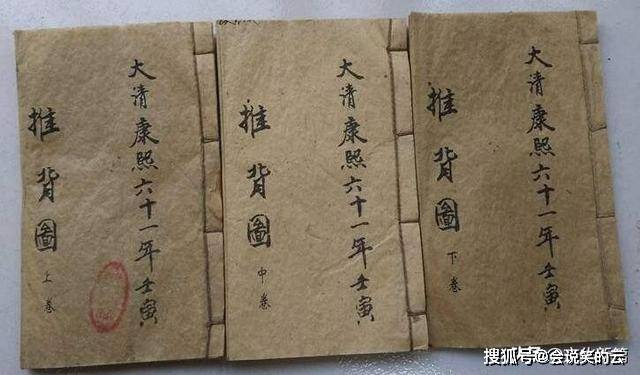 大清康熙六十一年壬寅
推背圖
上卷
大清康熙六十一年壬寅
推背圖
中卷
大清康熙六十一年壬寅
推背圖
下卷
搜狐号@会说笑的云